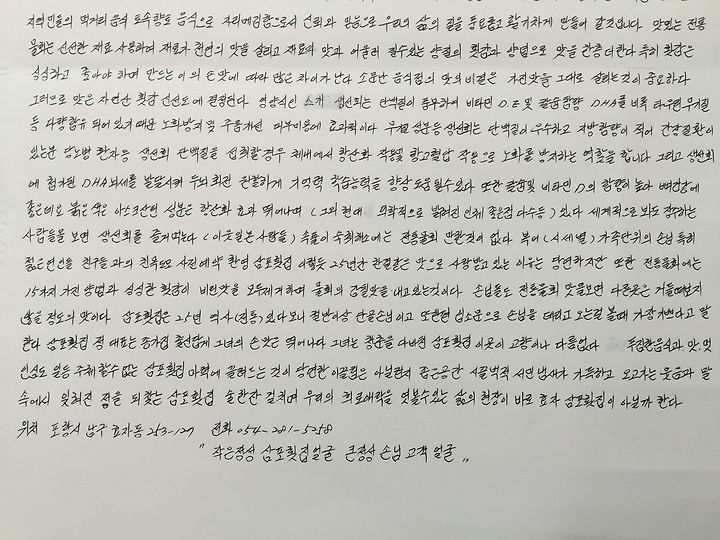 지역민들의 먹거리 음식 토속향토 음식으로 자리매김함으로서 신뢰와 믿음으로 우리네 삶의 질을 풍요롭고 활기차게 만들어 갈것입니다 맛있는 전통
물회는 신선한 재료 사용하여 재료가 천연의 맛을 살리고 재료의 맛과 어울려 필수있는 양질의 횟감과 양념으로 맛을 한층더한다 특히 횟감은
싱싱하고 좋아야 하며 만드는 이의 손맛에 따라 많은 차이가 난다 소문난 음식점의 맛의 비결은 가진맛을 그대로 살리는것이 중요하다
그러므로 맛은 자연산 횟감 신선도에 결정된다 영양식인 소개 생선회는 단백질이 풍부하여 비타민 D.E 및 칼슘함량 DHA를 비록 타우린무기질
등 다량함유 되어 있기 때문 노화방지 및 주름개선 피부미용에 효과적이다 무기질 성분등 생선회는 단백질이 우수하고 지방함량이 적어 건강질환이
있는분 당뇨병 환자등 생선회 단백질을 섭취할경우 체내에서 항산화 작용및 항고혈압 작용으로 노화를 방지하는 역할을 합니다 그리고 생선회
에 첨가된 DHA뇌세를 발달시켜 두뇌회전 원활하게 기억력 학습능력을 향상 도움될수있다 또한 칼슘및 비타민 D의 함량이 높아 뼈건강에
좋은데요 붉은 속은 아스크산틴 성분은 항산화 효과 뛰어나며 (그외 현대 의학적으로 밝혀진 인체 좋은점 다수등) 있다 세계적으로 봐도 장수하는
사람들을 보면 생선회를 즐겨먹는다 (이웃일본사람들) 속풀이 숙취해소에는 전통물회 만한것이 없다 복어(시세별) 가족단위의 손님 특히
젊은연인들 친구들 과의 친목도모 사전예약 환영 삼포횟집 이렇듯 25년간 한결같은 맛으로 사랑받고 있는 이유는 당연하지만 또한 전통물회에는
15가지 가진 양념과 싱싱한 횟감이 비린맛을 모두제거하며 물회의 감칠맛을 내고있는것이다 손님들도 전통물회 맛을보면 다른곳은 거들떠보지
않을 정도의 맛이다 삼포횟집은 25년 역사(전통)있다보니 절반이상 단골손님이고 또한번 입소문으로 손님을 데리고 오는걸 볼때 가장기쁘다고 말
한다 삼포횟집 점 대표는 종가집 출신답게 그녀의 손맛은 뛰어나다 그녀는 청춘을 다바친 삼포횟집 이곳이 고향이나 다름없다 푸짐한음식과.맛.멋
인심도 얻는 주체할수없는 삼포횟집 마력에 끌려드는 것이 당연한 이끌림은 아닐런지 좁은공간 시끌벅적 사람 냄새가 가득하고 오고가는 웃음과 말
속에서 잊혀진 정을 되찾는 삼포횟집 술한잔 걸치며 우리의 희로애락을 엿볼수있는 삶의 현장이 바로 효자 삼포횟집이 아닐까 한다
위치 포항시 남구 효자동 253-127 전화 054-281-5258
" 작은정성 삼포횟집얼굴 큰정성 손님 고객 얼굴 "